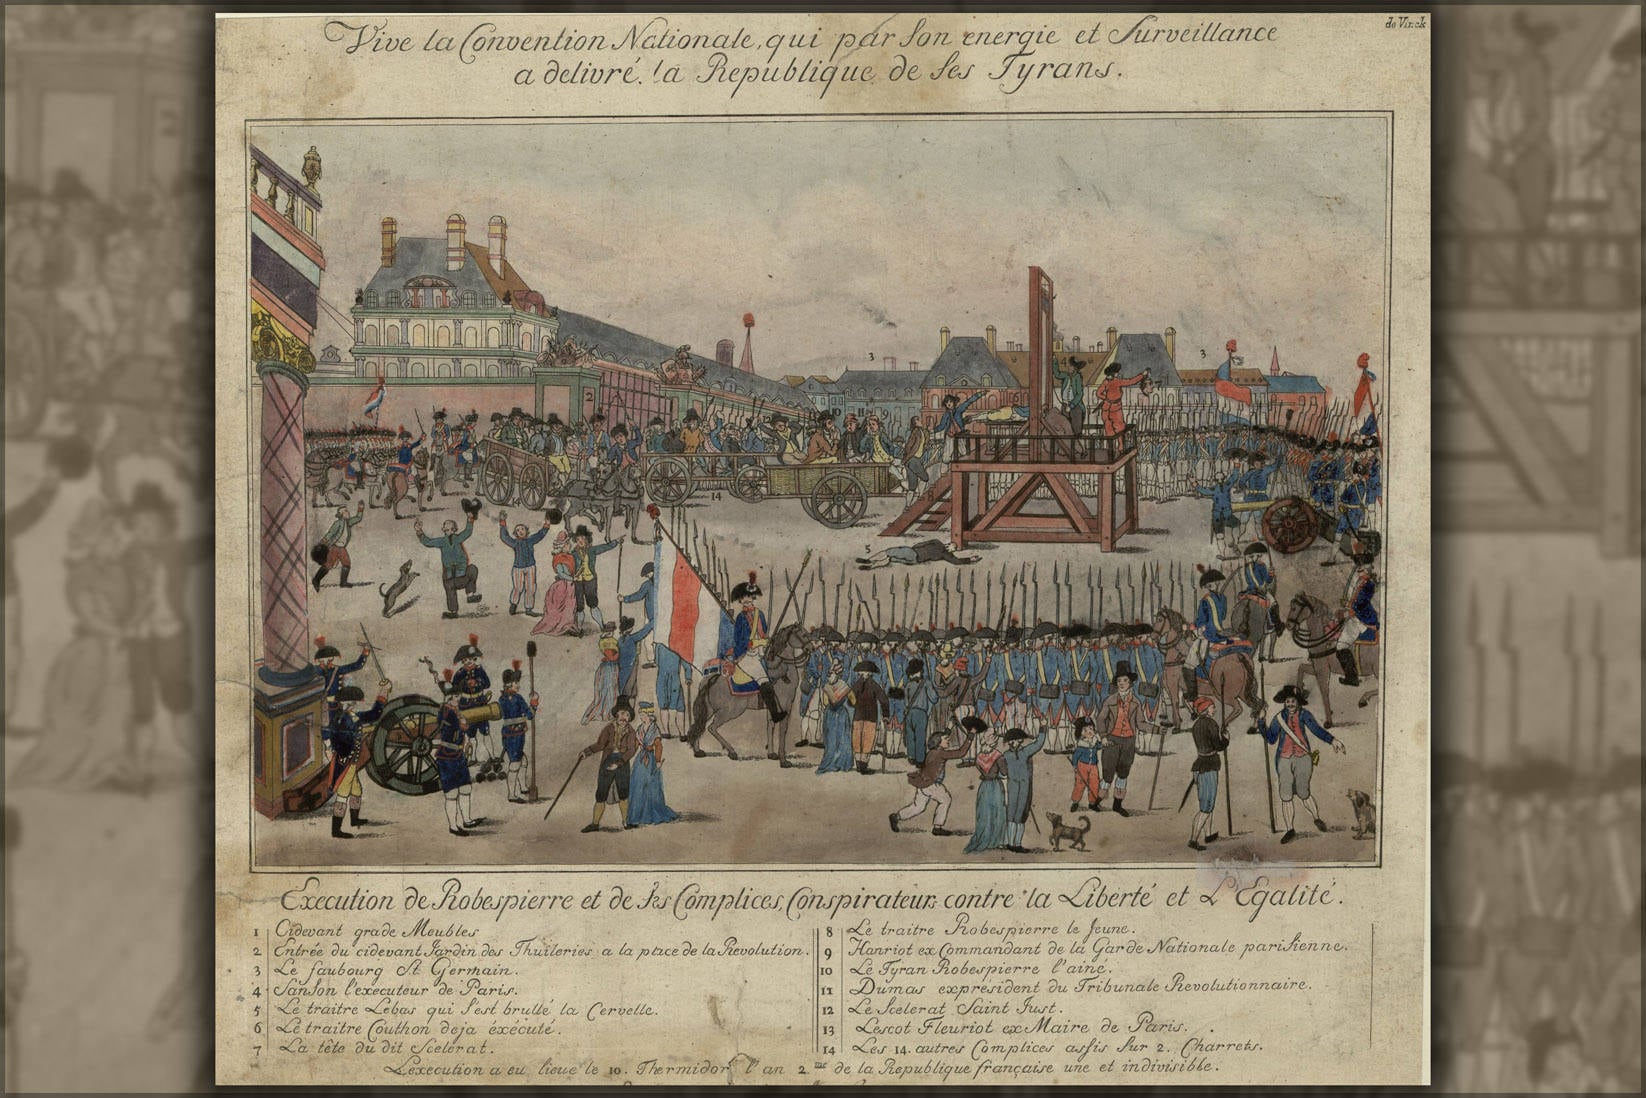 de Vinck
Vive la Convention Nationale, qui par son energie et Surveillance
a delivré la Republique de ses Tyrans.
2
3
3
4
7
10
11
9
14
8
5
Execution de Robespierre et de ses Complices, Conspirateurs contre la Liberté et L'Egalité.
1 Cidevant grade Meubles
2 Entrée du cidevant Jardin des Thuileries a la place de la Revolution.
3 Le faubourg St Germain.
4 Sanson l'executeur de Paris.
5 Le traitre Lebas qui s'est brullé la Cervelle.
6 Le traitre Couthon deja éxécuté.
7 La tête du dit Scelerat.
8 Le traitre Robespierre le Jeune.
9 Hanriot ex Commandant de la Garde Nationale parisienne.
10 Le Tyran Robespierre l'ainé.
11 Dumas exprésident du Tribunale Revolutionnaire.
12 Le Scelerat Saint Just.
13 Lescot Fleuriot ex Maire de Paris.
14 Les 14. autres Complices assis sur 2. Charrets.
L'execution a eu lieue le 10. Thermidor l'an 2.me de la Republique française une et indivisible.